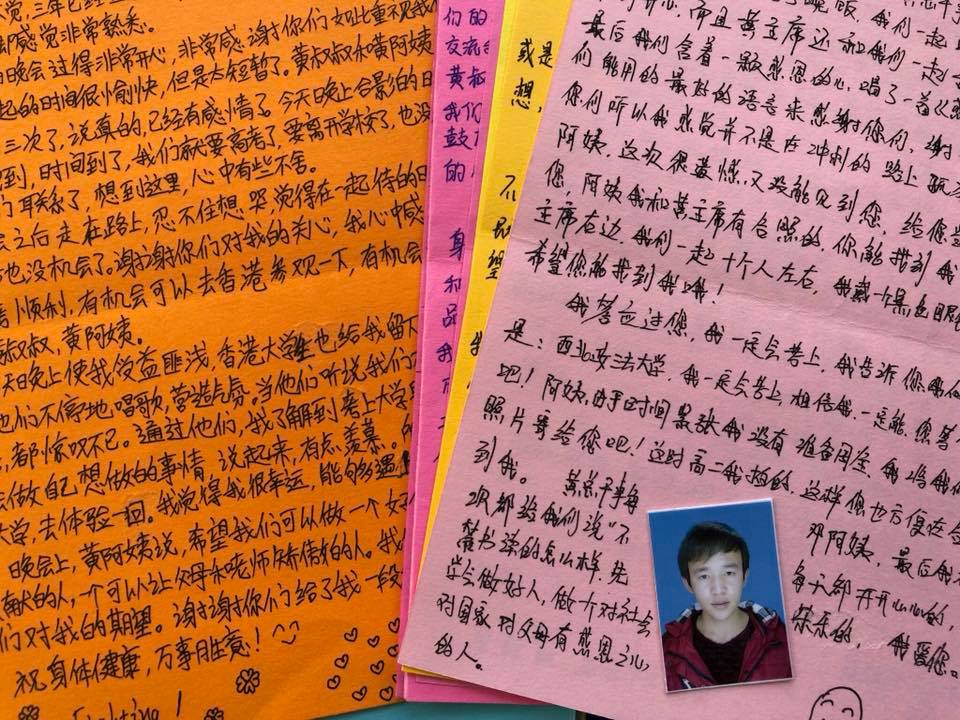 觉,三年已经
却感觉非常熟悉。
日晚会过得非常开心,非常感谢你们如此重视我们
起的时间很愉快,但是太短暂了。黄叔叔和黄阿姨
三次了,说真的,已经有感情了。今天晚上合影的
到,时间到了,我们就要高考了,要离开学校了,也没
们联系了,想到这里,心中有些不舍。
会之后走在路上,忍不住想哭,觉得在一起待的日
也没机会了。谢谢你们对我的关心,我心中感
顺利,有机会可以去香港参观一下,有机会
叔叔,黄阿姨。
天晚上使我受益匪浅,香港大学生也给我留下
他们不停地唱歌,营造气氛。当他们听说我们
,都惊叹不已。通过他们,我了解到考上大学
去做自己想做的事情,说起来,有点羡慕。
大学,去体验一回。我觉得我很幸运,能够遇上
晚会上,黄阿姨说,希望我们可以做一个好
献的人,一个可以让父母和老师骄傲的人。我
们对我的期望。谢谢你们给了我一段
祝身体健康,万事胜意!
Fighting!
们的
交流
黄叔
我们
鼓
的
身
和
品
我
或是
想,
不
望
我
晚饭,我们一起
开心,而且黄主席还和我们一起
最后我们含着一颗感恩的心,唱了一首《
们能用的最好的语言来感谢您们,谢
您们所以我感觉并不是在冲刺的路上
阿姨,这次很遗憾,又没能见到您,给您
您,阿姨我和黄主席有合照的,你能找到我
主席右边,我们一起十个人左右,我戴个黑色眼
希望您能找到我哦!
我答应过您,我一定会考上,我告诉您我
是:西北政法大学,我一定会考上,相信我,一定能,您等
吧!阿姨,由于时间紧张我没有准备周全,我将我
照片寄给您吧!这时高二我拍的,这样您也方便在合
到我。 黄总干事每
次都给我们说“不
管书读的怎么样,先
学会做好人,做一个对社会
对国家对父母有感恩之心
的人。
邓阿姨,最后我
每天都开开心心的,
乐乐的,我爱您。